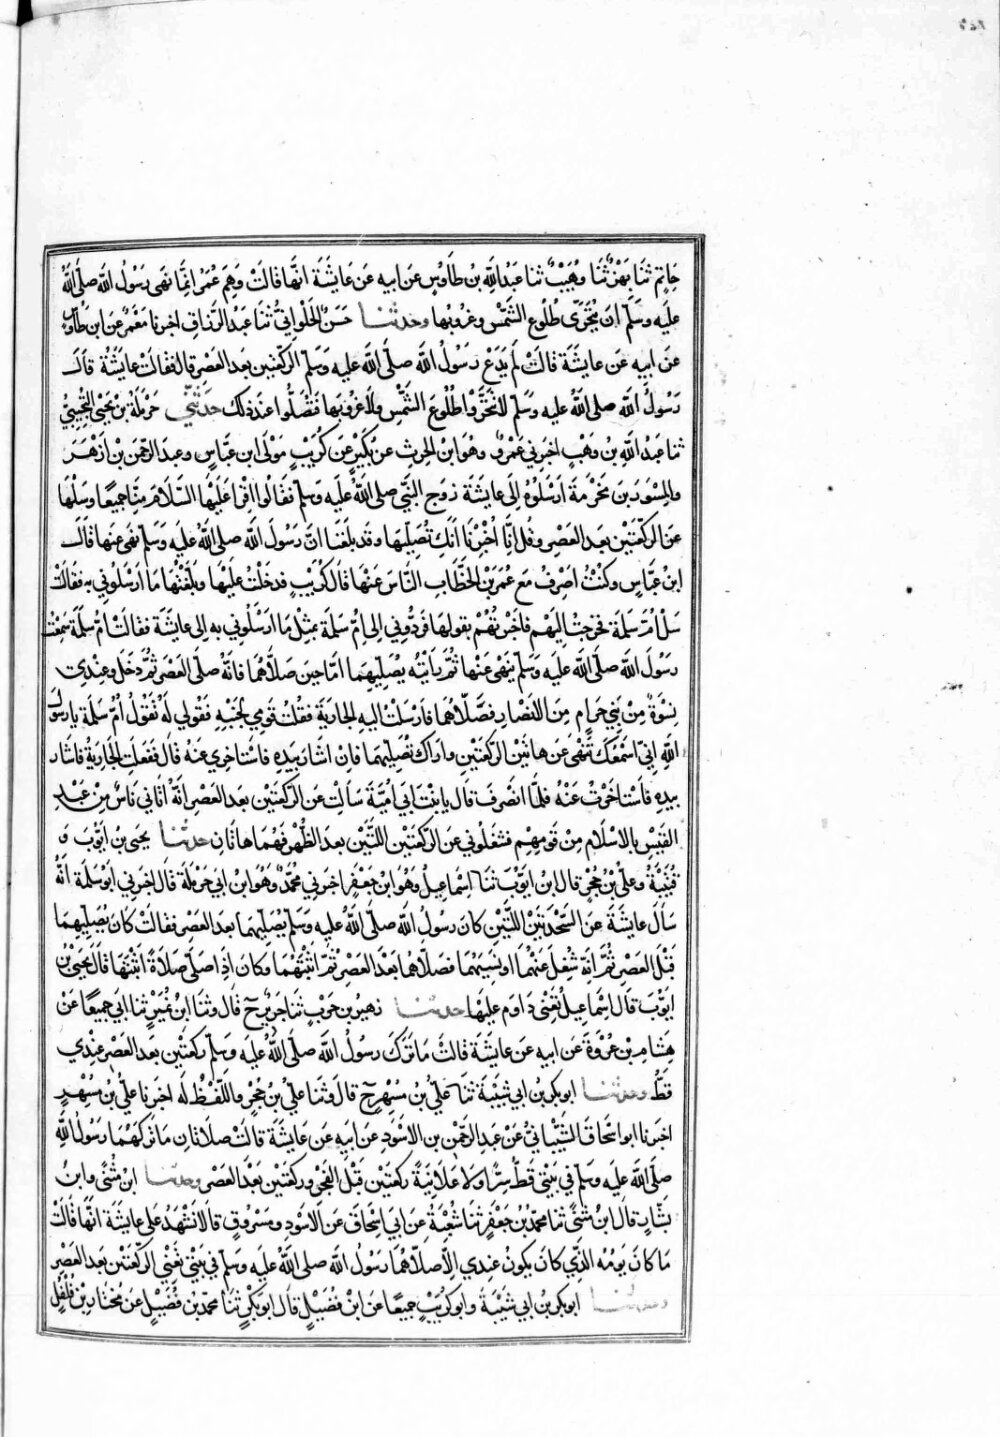 حَاتِم ثنا بَهْزٌ ثنا وُهَيْبٌ ثنا عبدالله بن طاوسٍ عن ابيه عن عايشَةَ انّها قالَتْ وَهِمَ عُمَرُ انّما نَهَى رَسُولُ الله صلى الله
عليه وسَلّم ان يُتَحَرّى طُلُوعُ الشّمْسِ وغروبُها وحدثنا حَسَنٌ الحُلْوانِيُّ ثنا عبد الرزاق اخبرنا مَعْمَرٌ عن ابن طاوس
عن ابيه عن عايشَةَ قالَتْ لم يَدَعْ رَسُولُ الله صلى الله عليه وَسَلّم الركعتين بعد العصر قال فقالَتْ عايشةُ قال
رَسُولُ الله صلى الله عليه وسَلّم لا تتحرّوا طُلُوعَ الشّمسِ ولا غروبَها فتُصَلُّوا عند ذلك حدثني حَرْمَلَةُ بن يحيى التُّجِيبيُّ
ثنا عبدُ الله بن وَهْبٍ اخبرني عَمْرٌو وهُوَ ابن الحرثِ عن بُكَيْرٍ عن كُرَيْبٍ مَوْلَى ابن عبّاسٍ وعبد الرحمن بن ازْهَرَ
والمِسْوَرَ بنَ مَخْرَمَةَ ارسَلُوهُ الى عايشَةَ زوج النّبي صلى الله عليه وسَلّم فقالُوا اقْرَا عَلَيْها السّلامَ مِنّا جميعًا وسَلْها
عن الركعتين بعد العصرِ وقُل انّا اُخْبِرْنا انّكِ تُصَلِّيها وقد بلغَنا انّ رَسُولَ الله صلى الله عليه وسَلّم نَهَى عنها قال
ابنُ عبّاسٍ وكُنْتُ اصرِفُ مَعَ عُمَرَ بْنِ الخطّابِ النّاسَ عَنْها قالَ كُرَيْبٌ فدخَلْتُ عليْها وبَلّغْتُها ما ارسَلُوني به فقالَتْ
سَلْ امّ سَلَمة فخرجتُ اليهم فاخبرتُهُم بقولها فردُّوني الى امّ سَلَمة بمثل ما ارسَلُوني به الى عايشَةَ فقالَتْ امّ سَلَمة سَمِعْتُ
رَسُولَ الله صلى الله عليه وَسَلّم ينهَى عَنْها ثُمّ رَايتُهُ يصلّيهما امّا حين صلّاهُما فانّهُ صلّى العصرَ ثم دَخَلَ وعِنْدي
نِسْوَةٌ من بني حَرامٍ من الانصارِ فصلّاهُما فارسَلْتُ اليه الجارية فقلتُ قومي بجنبِه فقولي له تقول امّ سَلَمة يا رسولَ
الله انّي اسْمَعُكَ تَنْهَى عن هاتين الركعتين واراكَ تُصَلّيهما فان اشارَ بيده فاستاخري عَنْهُ قالَ ففعلَتِ الجاريةُ فاشار
بيدِه فاستاخرَتْ عَنْهُ فلمّا انصرفَ قال يابنتَ ابي امَيّةَ سَالتِ عن الركعتين بعد العصرِ انّهُ اتاني ناسٌ من عبد
القيسِ بالاسلام مِن قومِهِم فشغَلُوني عن الركعتين اللتين بعد الظهر فَهُما هاتانِ حدثنا يحيى بن ايّوبَ و
قُتَيْبَةُ وعليّ بن حُجْرٍ قال ابن ايّوبَ ثنا اسماعيلُ وهُوَ ابنُ جعفَرٍ اخبرني محمّدٌ وهُوَ ابن ابي حرملةَ قال اخبرني ابو سَلَمة انّهُ
سَالَ عايشَةَ عن السّجدَتَيْنِ اللتَيْنِ كانَ رَسُولُ الله صلى الله عليه وسلّم يصلّيهما بعد العصرِ فقالَتْ كان يُصَلّيهما
قَبْلَ العصرِ ثُمّ انّه شُغِلَ عنهما او نَسِيَهما فصلّاهما بَعْدَ العصرِ ثم اثْبَتَهُما وكانَ اذا صلّى صلاةً اثبتَها قال يحيى بن
ايّوبَ قال اسماعيلُ تَعْنِي دَاوَمَ عليها حدثنا زهير بن حربٍ ثنا جريرٌ ح قال وثنا ابنُ نُمَيْرٍ ثنا ابي جميعًا عن
هِشامِ بن عُرْوَةَ عن ابيه عن عايشَةَ قالَتْ ما تَرَكَ رسُولُ الله صلى الله عليه وسَلّم ركعتين بعد العصرِ عندي
قَطُّ وحدثنا ابوبكر بن ابي شيْبَةَ ثنا عليّ بن مُسْهِرٍ ح قال وثنا عليّ بن حُجْرٍ واللفظُ له اخبرنا عليّ بن مُسْهِرٍ
اخبرنا ابو اسحاقَ الشّيْبانيُّ عن عبد الرحمن بن الاسْوَدِ عن ابيه عن عايشَةَ قالتْ صلاتانِ ما تركهما رَسُولُ الله
صلى الله عليه وسَلّم في بيتي قطُّ سِرًّا ولا عَلانِيَةً ركعتَيْنِ قَبْلَ الفجرِ وركعتين بَعْدَ العصرِ وحدثنا ابن مُثَنَّى وابنُ
بشّارٍ قال ابنُ مثنّى ثنا محمّد بن جَعفَرٍ ثنا شُعْبَةُ عن ابي اسحاقَ عن الاسوَدِ ومَسْرُوقٍ قالا نشْهَدُ على عايشَةَ انّها قالَتْ
ما كانَ يومُه الّذي كانَ يكونُ عِندي الّا صلّاهُما رَسُولُ الله صلى الله عليه وسَلّم في بيتي تَعْنِي الركعتَيْن بعد العصْرِ
وحدثنا ابوبكر بن ابي شَيْبَةَ وابو كُرَيْبٍ جميعًا عن ابن فضَيْلٍ قال ابو بكرٍ ثنا محمّد بن فُضَيْلٍ عن مختار بن فُلْفُلٍ